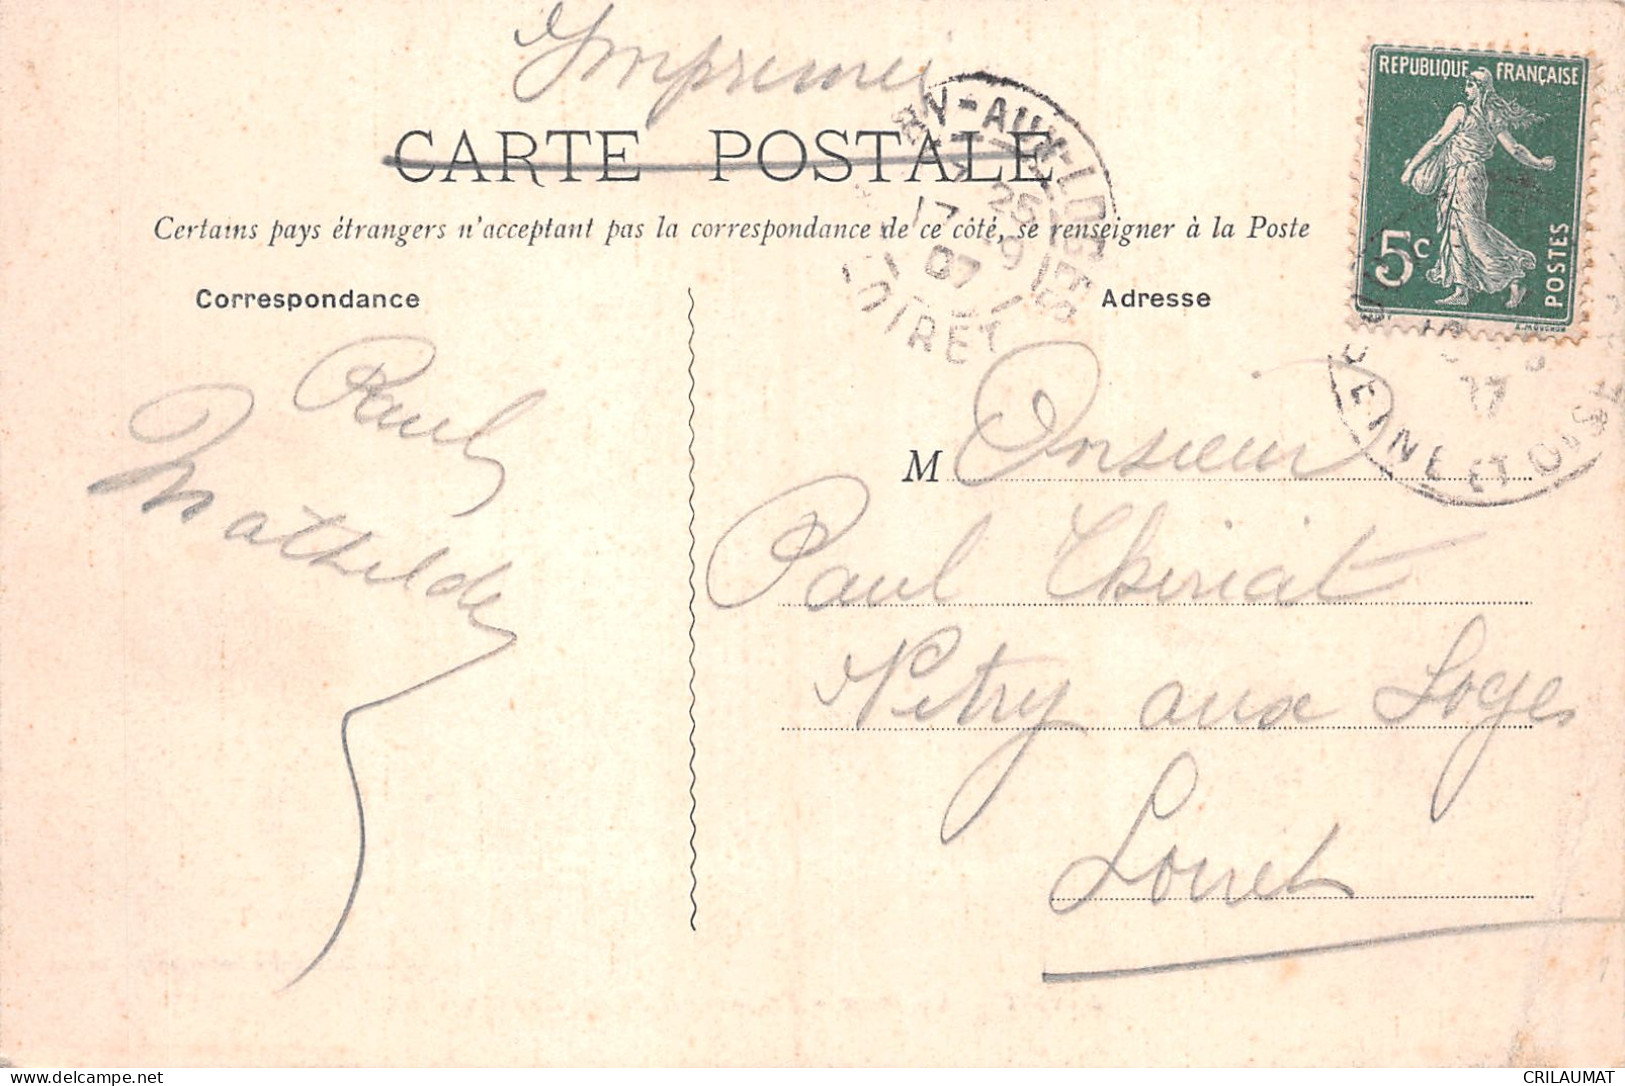 Imprimé
CARTE POSTALE
Certains pays étrangers n'acceptant pas la correspondance de ce côté, se renseigner à la Poste
Correspondance
Adresse
REPUBLIQUE FRANÇAISE
5c
POSTES
RY-AUX-LOGES
17
25
9
07
LOIRET
SEINE ET OISE
Paul
Mathilde
Monsieur
Paul Thiriat
Vitry aux Loges
Loiret
CRILAUMAT